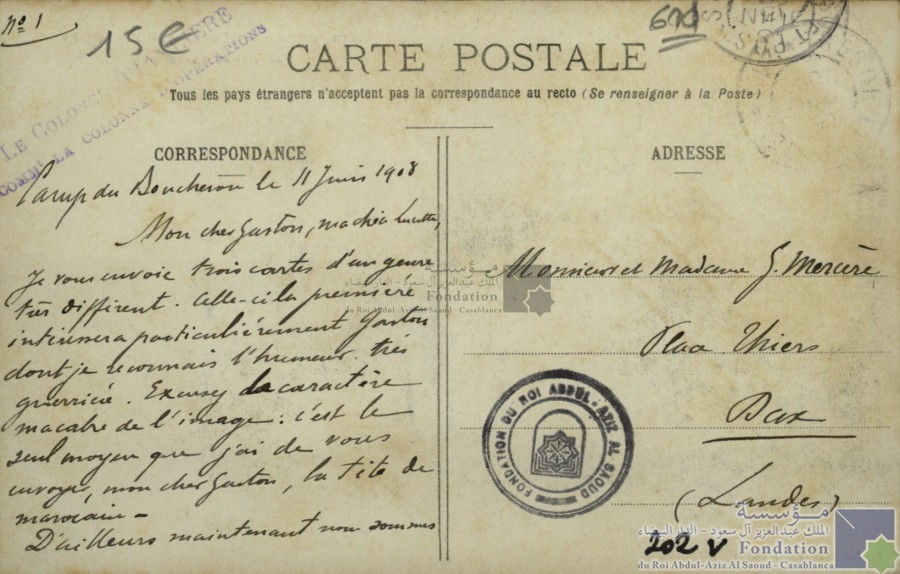 Nº 1
15 €
LE COLONEL
COMMᵗ LA COLONNE D'OPÉRATIONS
CARTE POSTALE
Tous les pays étrangers n'acceptent pas la correspondance au recto (Se renseigner à la Poste)
CORRESPONDANCE
Camp du Boucheron le 11 Juin 1908
Mon cher Gaston, ma chère Lucette,
Je vous envoie trois cartes d'un genre
très différent. Celle-ci la première
intéressera particulièrement Gaston
dont je reconnais l'humeur très
guerrière. Excusez le caractère
macabre de l'image : c'est le
seul moyen que j'ai de vous
envoyer, mon cher Gaston, la tête de
marocain -
D'ailleurs maintenant nous sommes
ADRESSE
Monsieur et Madame G. Mercère
Place Thiers
Dax
(Landes)
FONDATION DU ROI ABDUL-AZIZ AL SAOUD
202 v
مؤسسة
الملك عبد العزيز آل سعود - الدار البيضاء
Fondation
du Roi Abdul-Aziz Al Saoud - Casablanca
مؤسسة
الملك عبد العزيز آل سعود - الدار البيضاء
Fondation
du Roi Abdul-Aziz Al Saoud - Casablanca